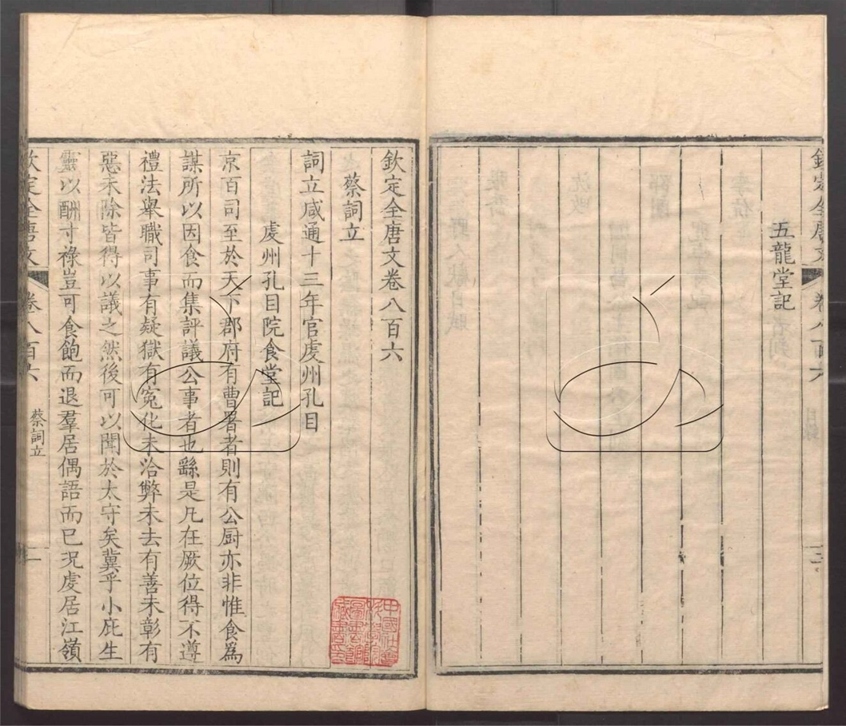 欽定全唐文
卷八百六
五龍堂記
欽定全唐文卷八百六
蔡詞立
詞立咸通十三年官䖏州孔目
䖏州孔目院食堂記
京百司至於天下郡府有曹署者則有公厨亦非惟食為
謀所以因食而集評議公事者也繇是凡在厥位得不遵
禮法舉職司事有疑獄有寃化未洽弊未去有善未彰有
惡未除皆得以議之然後可以聞於太守矣冀乎小庇生
靈以酬寸祿豈可食飽而退羣居偶語而已況䖏居江嶺
欽定全唐文
卷八百六
蔡詞立
一